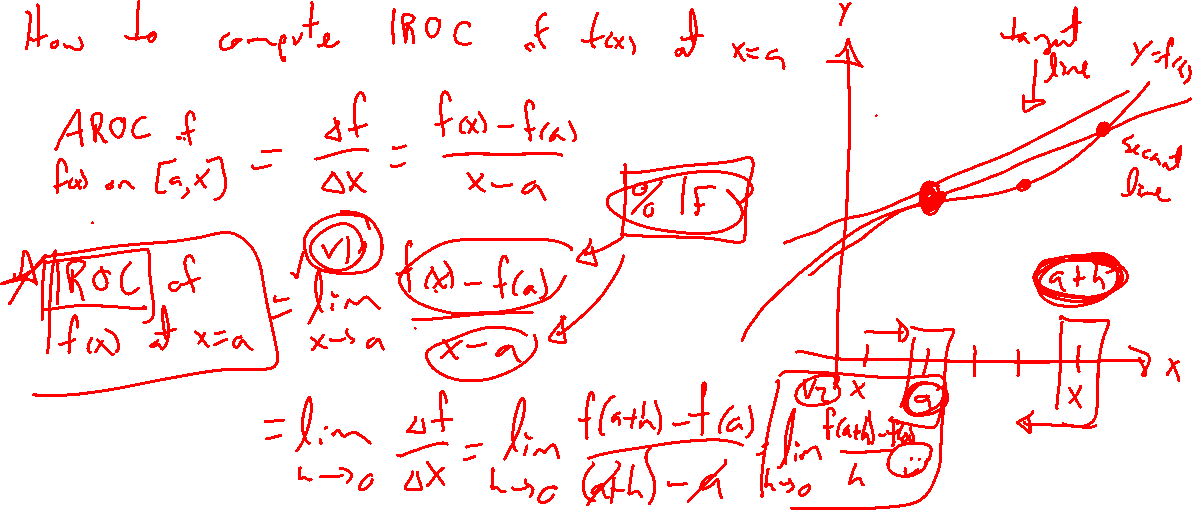 How to compute IROC of f(x) at x=a
AROC of f(x) on [a,x] = Δf/ΔX = f(x)-f(a)/x-a
% IF
V1
IROC of f(x) at x=a = lim x→a f(x)-f(a)/x-a
= lim h→0 Δf/ΔX = lim h→0 f(a+h)-f(a)/(a+h)-a
V2
lim h→0 f(a+h)-f(a)/h
Y
tangent line
Y=f(x)
secant line
a+h
x
a
x
X